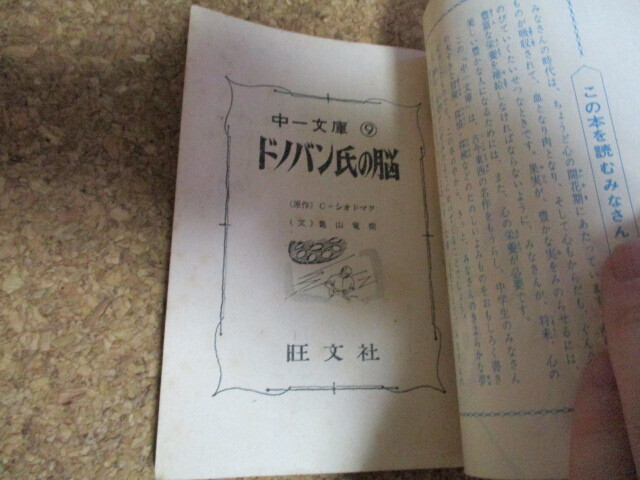 中一文庫 ⑨
ドノバン氏の脳
(原作) C・シオドマク
(文) 亀山竜樹
旺文社
この本を読むみなさん
みなさんの時代は、ちょうど心の開花期にあたっています
ものが吸収されて、血となり肉となり、そして心もからだも、ぐんぐん
のびていくたいせつなときです。果実が、豊かな実をみのらせるには、
豊富な栄養を補給しなければならないように、みなさんが、将来、心の
美しい豊かな人になるためには、また、心の栄養が必要です。
この「中一文庫」は、古今東西の名作をもうらし、中学生のみなさん